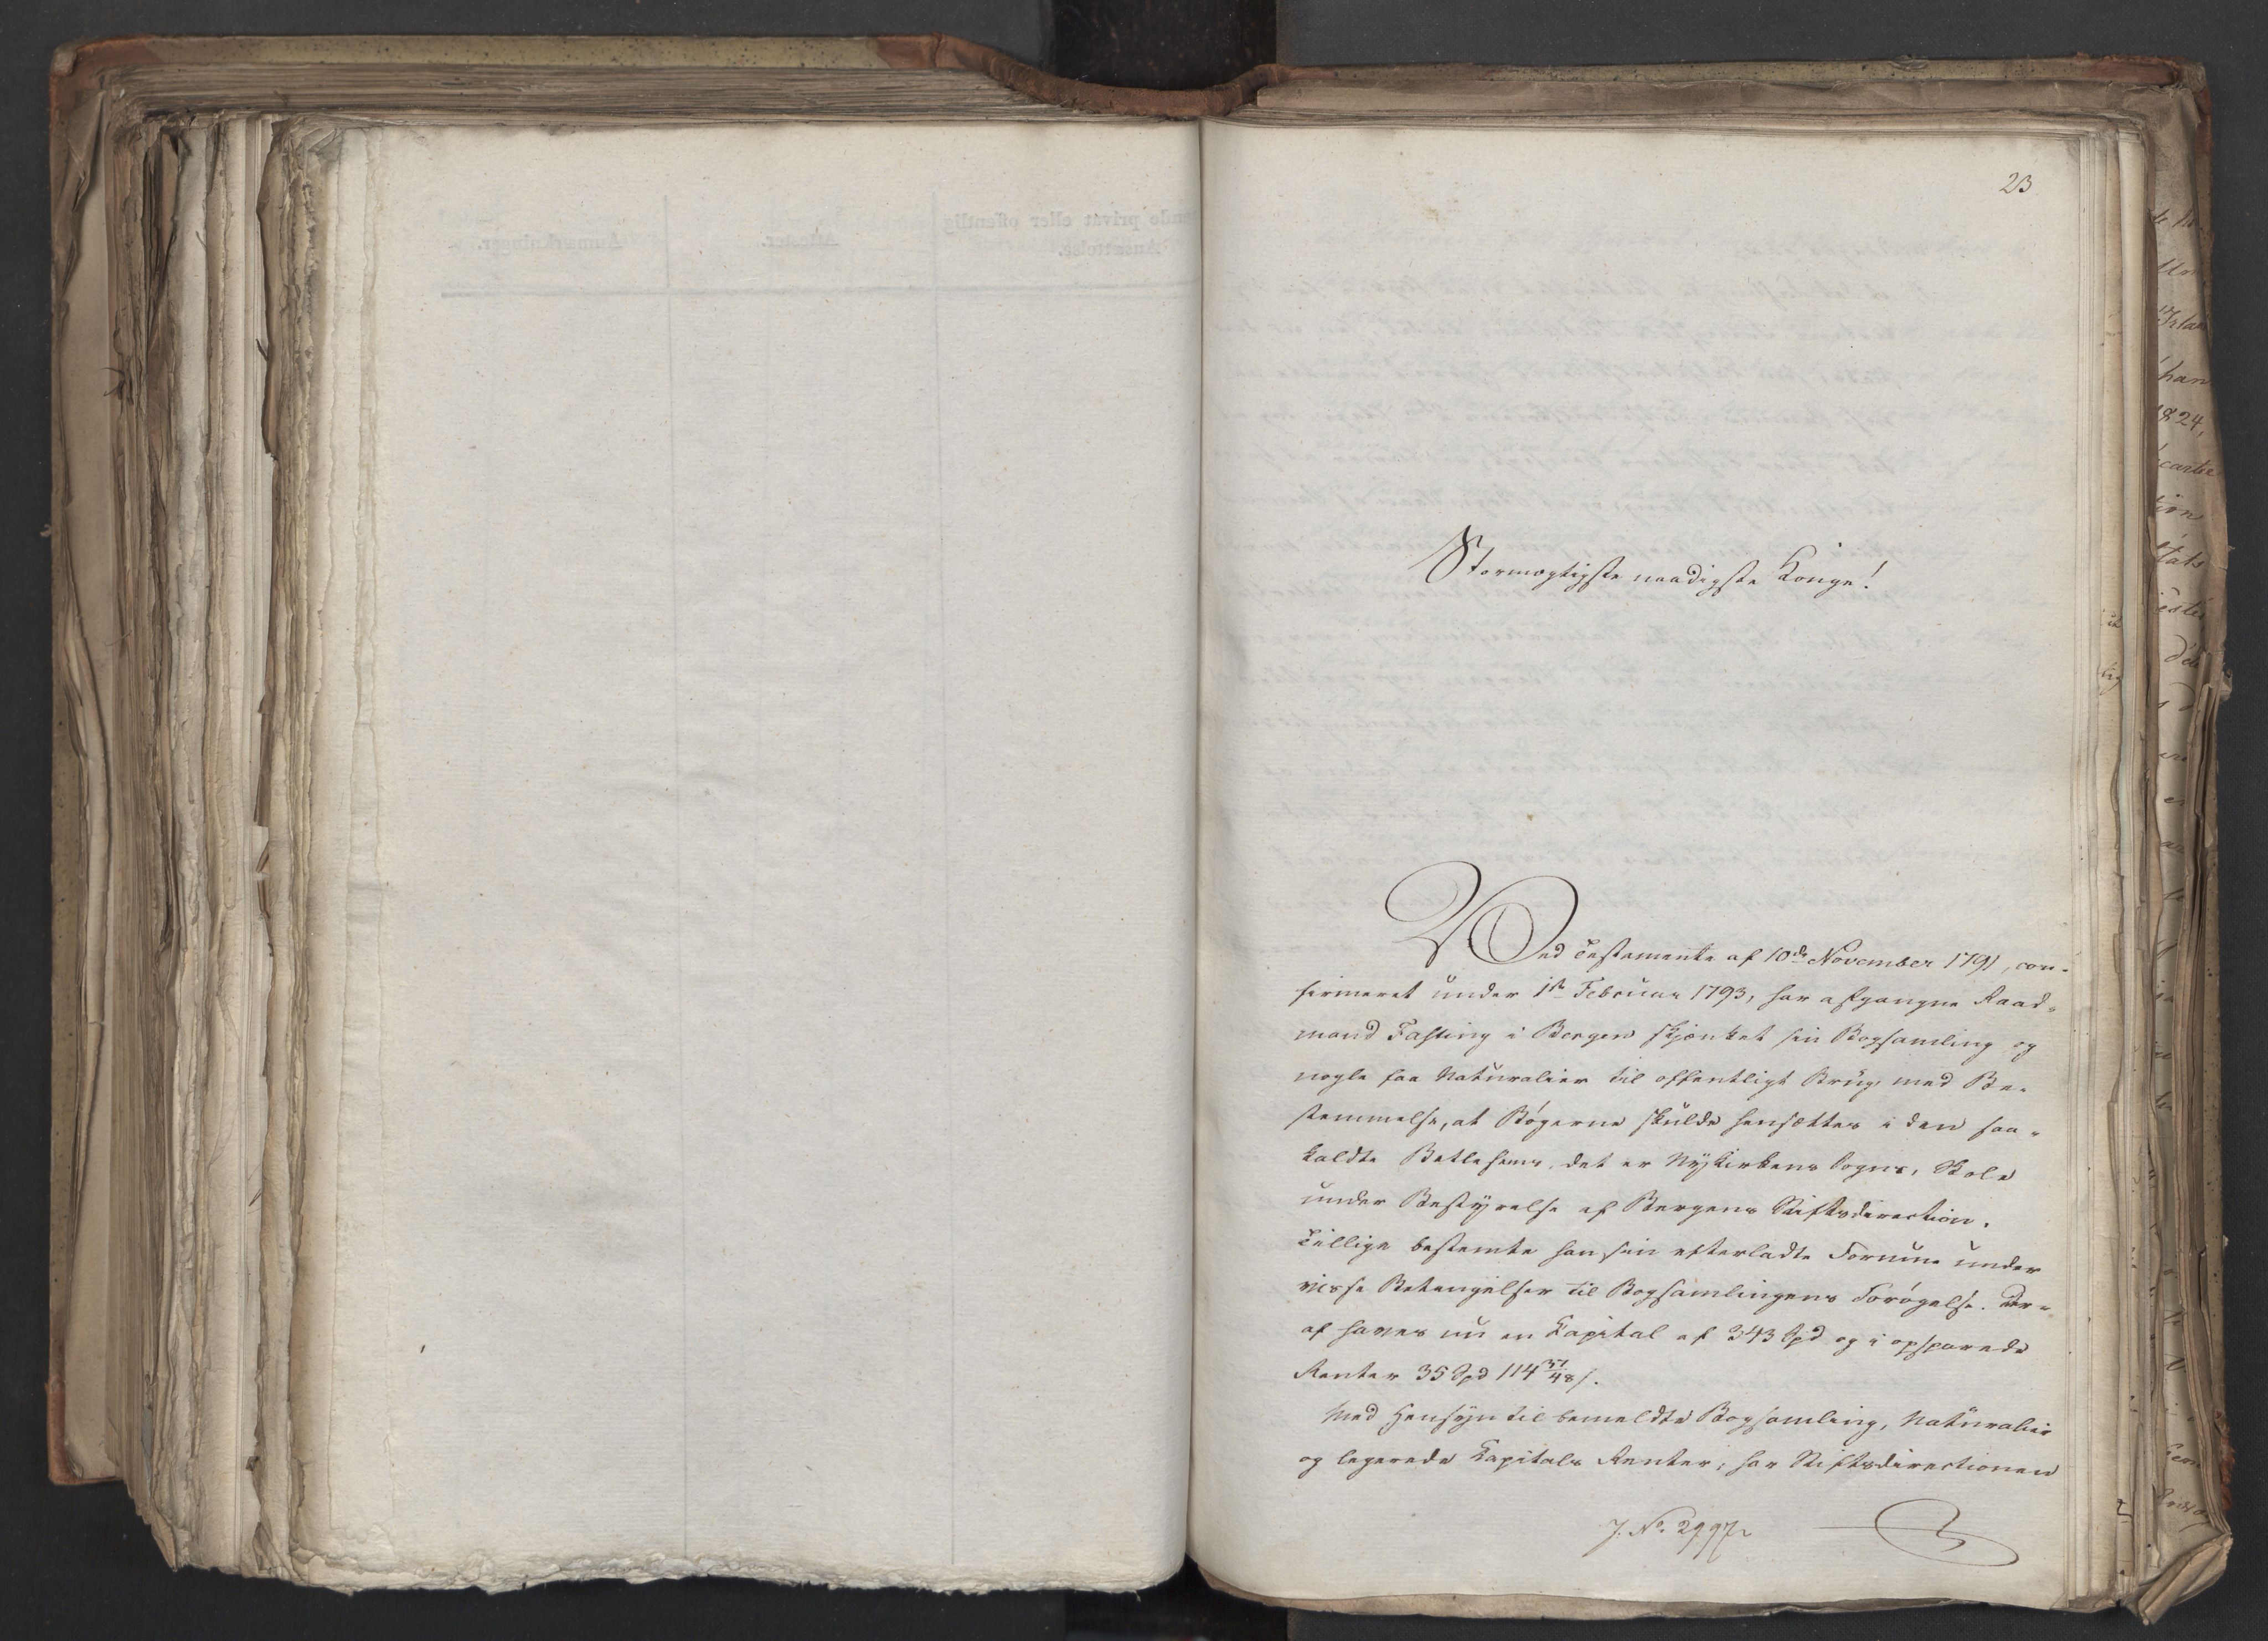 23
Stormægtigste naadigste Konge!
Ved Testamente af 10de November 1791, con-
firmeret under 1ste Februar 1793, har afgangne Raad-
mand Fasting i Bergen skjænket sin Bogsamling og
nogle faa Naturalier til offentligt Brug, med Be-
stemmelse, at Bøgerne skulde hensættes i den saa-
kaldte Betlehems, det er Nykirkens Sogns, Skole
under Bestyrelse af Bergens Stiftsdirection.
Tillige bestemte han sin efterladte Formue under
visse Betengelser til Bogsamlingens Forøgelse. Der-
af haves nu en Kapital af 343 Spd og i opsparede
Renter 35 Spd 114 37/48 s.
Med Hensyn til bemeldte Bogsamling, Naturalier
og legerede Kapitals Renter, har Stiftsdirectionen
J. No. 2997